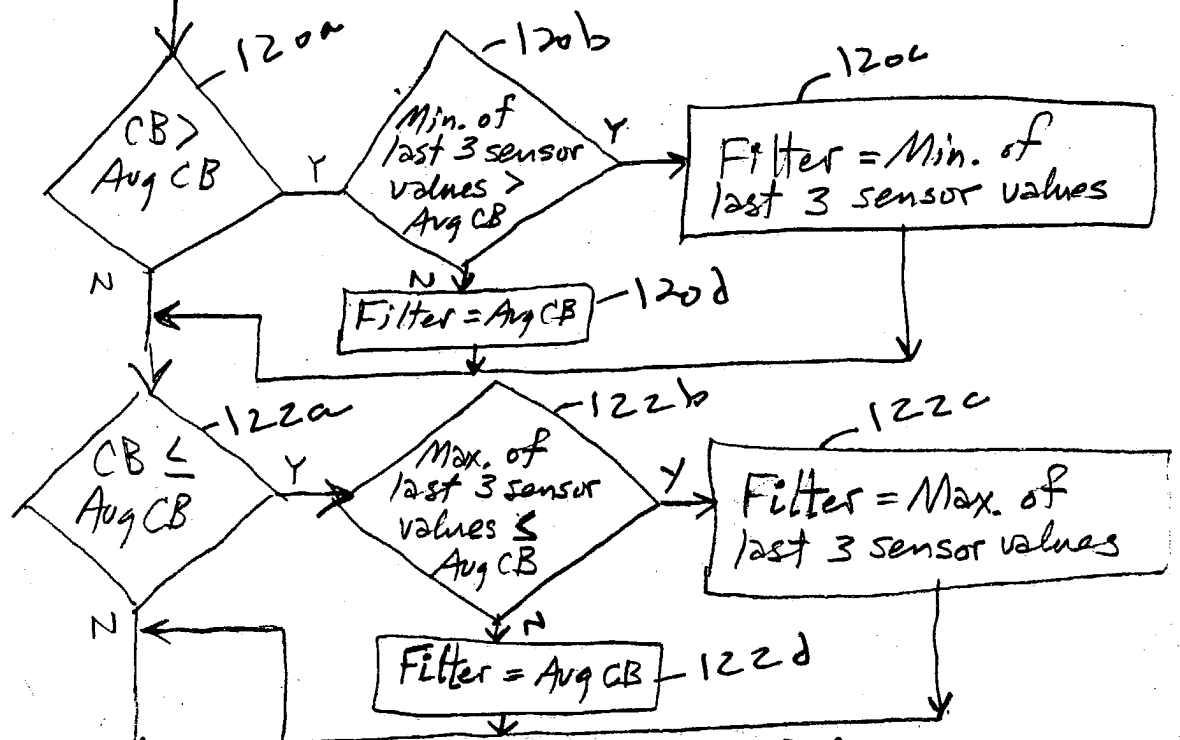 120a
120b
120c
CB >
Avg CB
Y
Min. of
last 3 sensor
values >
Avg CB
Y
Filter = Min. of
last 3 sensor values
N
N
Filter = Avg CB
120d
122a
122b
122c
CB ≤
Avg CB
Y
Max. of
last 3 sensor
values ≤
Avg CB
Y
Filter = Max. of
last 3 sensor values
N
N
Filter = Avg CB
122d